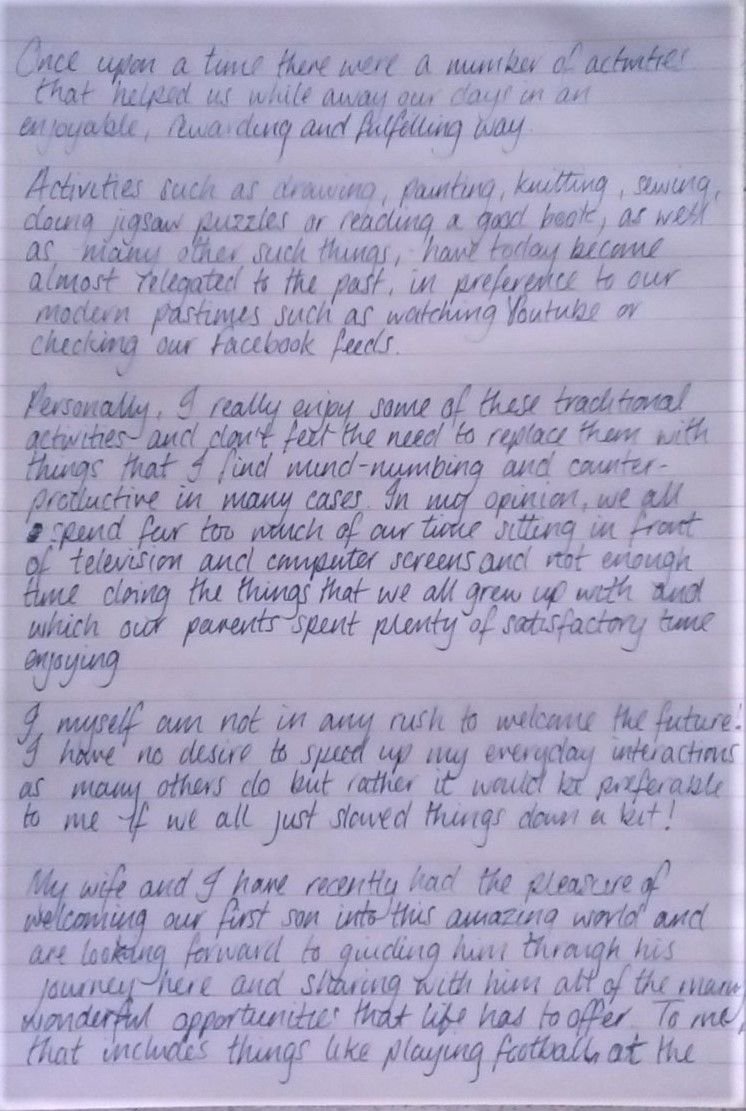 Once upon a time there were a number of activities
that helped us while away our days in an
enjoyable, rewarding and fulfilling way.
Activities such as drawing, painting, knitting, sewing,
doing jigsaw puzzles or reading a good book, as well
as many other such things, have today become
almost relegated to the past, in preference to our
modern pastimes such as watching Youtube or
checking our Facebook feeds.
Personally, I really enjoy some of these traditional
activities and don't feel the need to replace them with
things that I find mind-numbing and counter-
productive in many cases. In my opinion, we all
spend far too much of our time sitting in front
of television and computer screens and not enough
time doing the things that we all grew up with and
which our parents spent plenty of satisfactory time
enjoying
I myself am not in any rush to welcome the future!
I have no desire to speed up my everyday interactions
as many others do but rather it would be preferable
to me if we all just slowed things down a bit!
My wife and I have recently had the pleasure of
welcoming our first son into this amazing world and
are looking forward to guiding him through his
journey here and sharing with him all of the many
wonderful opportunities that life has to offer. To me,
that includes things like playing football at the